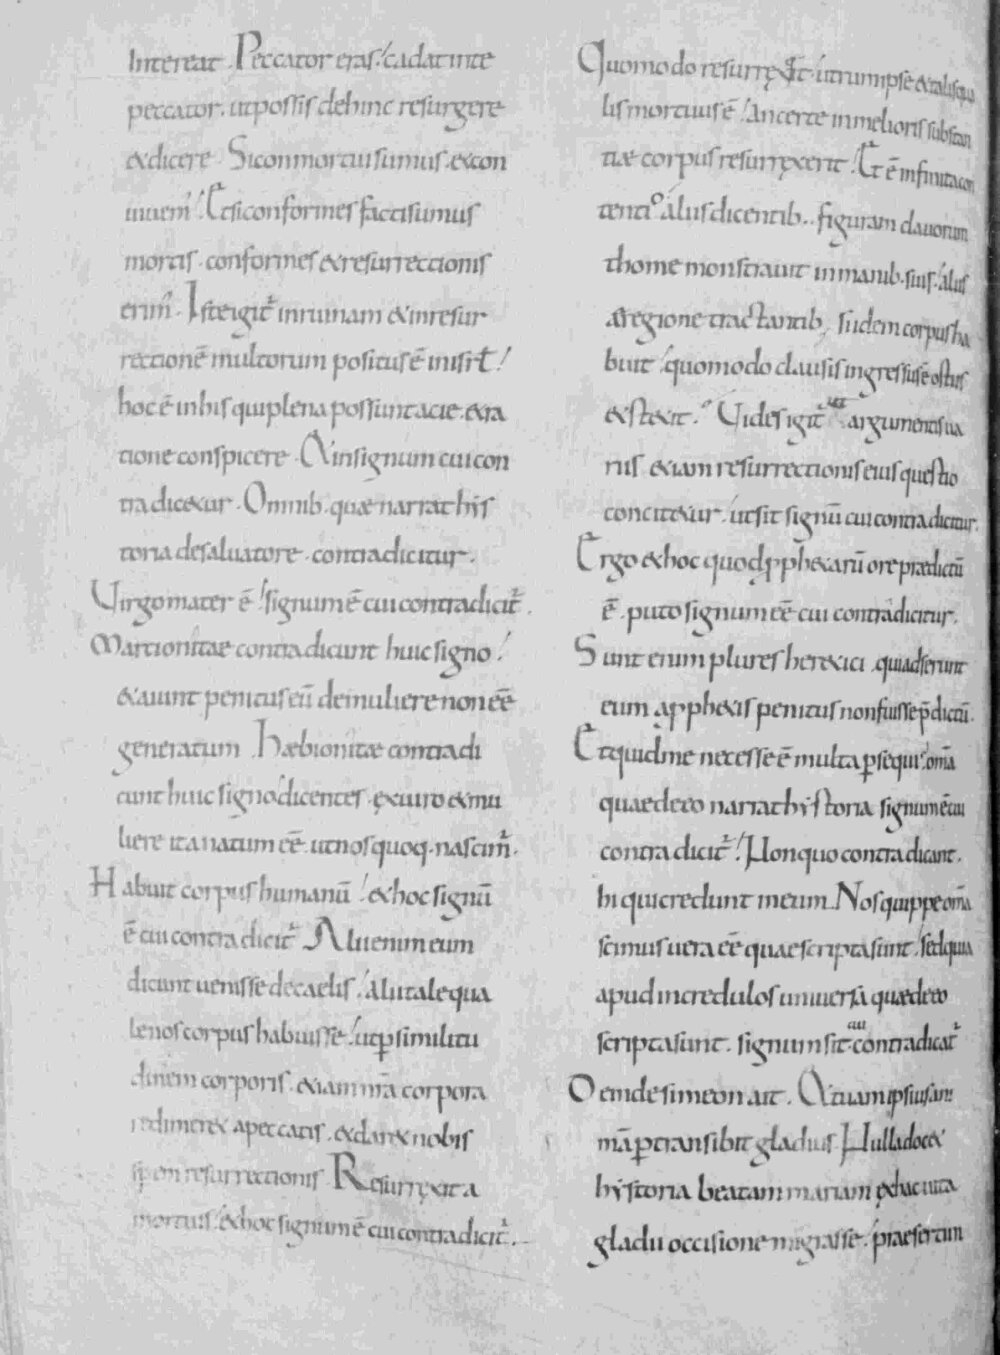 Intereat . Peccator eras! cadat in te
peccator . ut possis dehinc resurgere
& dicere Si conmortui sumus . & con
uiuem' ! Et si conformes facti sumus
mortis . conformes & resurrectionis
erim' . Iste igit' in ruinam & in resur
rectionē multorum positus ē in isrł !
hoc ē in his qui plena possunt acie & ra
tione conspicere . & in signum cui con
tradicetur . Omnib. quae narrat his
toria de saluatore . contradicitur .
Uirgo mater ē ! signum ē cui contradicit' .
Martionitae contradicunt huic signo !
& aiunt penitus eū de muliere non eē
generatum Haebionitae contradi
cunt huic signo dicentes . ex uiro & mu
liere ita natum eē . ut nos quoq. nascim' .
Habuit corpus humanū ! & hoc signū
ē cui contradicit' Alii enim eum
dicunt uenisse de caelis ! alii tale qua
le nos corpus habuisse ! ut p similitu
dinem corporis . & iam nr̄a corpora
redimeret a peccatis . & daret nobis
spem resurrectionis Resurręxit a
mortuis ! & hoc signum ē cui contradicit' .
Quomodo resurręxit . utrum ipse & talis qua
lis mortuus ē ! An certe in melioris substan
tiae corpus resurręxerit ! Et ē infinita con
tentio aliis dicentib. . figuram clauorum
thome monstrauit in manib. suis . aliis
ae regione tractantib, si idem corpus ha
buit ! quomodo clausis ingressus ē ostiis
& stetit . Uides igit' ut argumentis ua
riis & iam resurrectionis eius questio
concitetur . ut sit signū cui contradicitur .
Ergo & hoc quod pphetarū ore praedictū
ē . puto signum eē cui contradicitur .
Sunt enim plures heretici . qui adserunt
eum a pphetis penitus non fuisse p̄dictū .
Et quid me necesse ē multa psequi ! om̄a
quae de eo narrat hystoria signum ē cui
contradicit' ! Non quo contradicant .
hi qui credunt in eum . Nos quippe om̄a
scimus uera eē quae scripta sunt ! sed quia
apud incredulos uniuersa quae de eo
scripta sunt . signum sit cui contradicat'
Deinde simeon ait . & tuam ipsius ani
mā ptransibit gladius . Nulla docet
hystoria beatam mariam ex hac uita
gladii occisione migrasse . praesertim